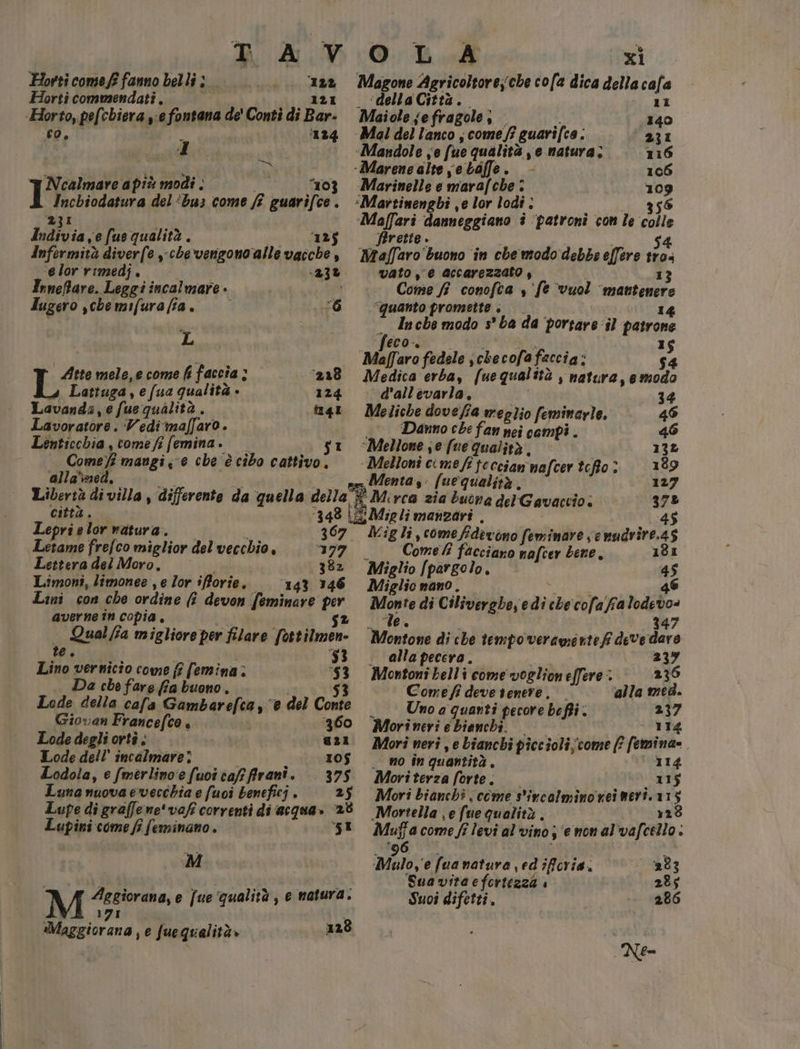 TAVOLA xi
Horti come si fanno belli; 122
Horti commendati. 121
Horto, peschiera, e fontana de' Conti di Bar-
co. 124
I
INcalmare a più modi: 103
Inchiodatura del bus come si guarisce.
231
Indivia, e sue qualità. 125
Infermità diverse, che vengono alle vacche,
e lor rimedj. 232
Innestare. Leggi incalmare.
Iugero, che misura sia. 6
L
LAtte mele, e come si faccia; 218
Lattuga, e sua qualità. 124
Lavanda, e sue qualità. 141
Lavoratore. Vedi massaro.
Lenticchia, come si semina. 51
Come si mangi, e che è cibo cattivo.
alla med.
Libertà di villa, differente da quella della
città. 348
Lepri e lor natura. 367
Letame fresco miglior del vecchio. 177
Lettera del Moro. 382
Limoni, limonee, e lor istorie. 143 146
Lini con che ordine si devon seminare per
averne in copia. 52
Qual sia migliore per filare sottilmen-
te. 53
Lino vernicio come si semina: 53
Da che fare sia buono. 53
Lode della casa Gambaresca, e del Conte
Giovan Francesco. 360
Lode degli orti: 121
Lode dell' incalmare: 105
Lodola, e smerlino e suoi cassirani. 375
Luna nuova e vecchia e suoi beneficj. 25
Lupe di grasse ne' vasi correnti di acqua. 28
Lupini come si seminano. 51
M
MAggiorana, e sue qualità, e natura.
171
Maggiorana, e sue qualità. 128
Magone Agricoltore, che cosa dica della casa
della Città. 11
Maiole, e fragole; 140
Mal del lanco, come si guarisce: 231
Mandole, e sue qualità, e natura; 116
Marene alte, e basse. 106
Marinelle e marasche: 109
Martinenghi, e lor lodi: 356
Massari danneggiano i patroni con le colle
strette. 54
Massaro buono in che modo debba essere tro-
vato, e accarezzato, 13
Come si conosca, se vuol mantenere
quanto promette. 14
In che modo s' ha da portare il patrone
seco. 15
Massaro fedele, che cosa faccia: 54
Medica erba, sue qualità, natura, e modo
d'allevarla. 34
Meliche dove sia meglio seminarle. 46
Danno che fan nei campi. 46
Mellone, e sue qualità. 132
Melloni come si feccian nascer tosto: 189
Menta, sue qualità. 127
Mirca zia buona del Gavaccio: 378
Migli manzari. 45
Migli, come si devono seminare, e nudrire. 45
Come si facciano nascer bene. 181
Miglio spargolo. 45
Miglio nano. 46
Monte di Ciliverghe, e di che cosa sia lodevo-
le. 347
Montone di che tempo veramente si deve dare
alla pecora. 237
Montoni belli come voglion essere: 236
Come si deve tenere. alla med.
Uno a quanti pecore basti. 237
Mori neri e bianchi. 114
Mori neri, e bianchi piccioli, come si semina-
no in quantità. 114
Mori terza sorte. 115
Mori bianchi, come s'incalmino nei neri. 115
Mortella, e sue qualità. 128
Muffa come si levi al vino, e non al vascello:
96
Mulo, e sua natura, ed istoria. 283
Sua vita e fortezza. 285
Suoi difetti. 286
Ne-